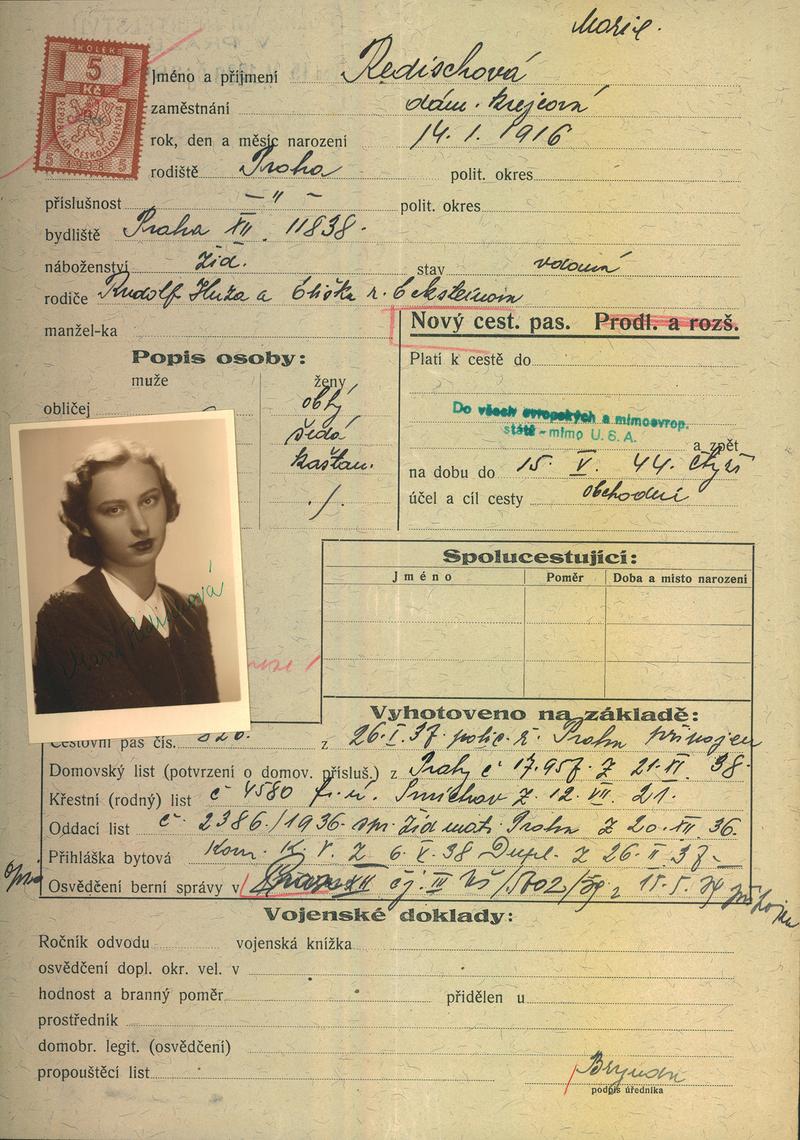 Marie.
KOLEK
5
Kč
REPUBLIKA ČESKOSLOVENSKÁ
5 1938 5
Jméno a příjmení Redischová
zaměstnání dám. krejčová
rok, den a měsíc narození 14. 1. 1916
rodiště Praha polit. okres
příslušnost — " — polit. okres
bydliště Praha XII. 11838.
náboženství žid. stav vdaná
rodiče Rudolf Huža a Eliška r. Ecksteinová
manžel-ka
Nový cest. pas. Prodl. a rozš.
Popis osoby:
muže ženy
obličej oblý
šedá
kaštan.
./.
Platí k cestě do
Do všech evropských a mimoevrop.
států - mimo U. S. A.
a zpět
na dobu do 15. V. 44. čtyř
účel a cíl cesty obchodní
Marie Redischová
Spolucestující:
Jméno Poměr Doba a místo narození
Vyhotoveno na základě:
Cestovní pas čís. z 26. I. 37 polic. ř. Praha
Domovský list (potvrzení o domov. přísluš.) z Prahy č 17.957 z 21. II. 38.
Křestní (rodný) list č 4580 Smíchov z. 12. VII. 21.
Oddací list č. 2386/1936 žid mat. Praha z 20. XII. 36.
Přihláška bytová Kom. z 6. V. 38 Dupl. z 26. II. 37
Osvědčení berní správy v čj. III
Vojenské doklady:
Ročník odvodu vojenská knížka
osvědčení dopl. okr. vel. v
hodnost a branný poměr přidělen u
prostředník
domobr. legit. (osvědčení)
propouštěcí list
podpis úředníka